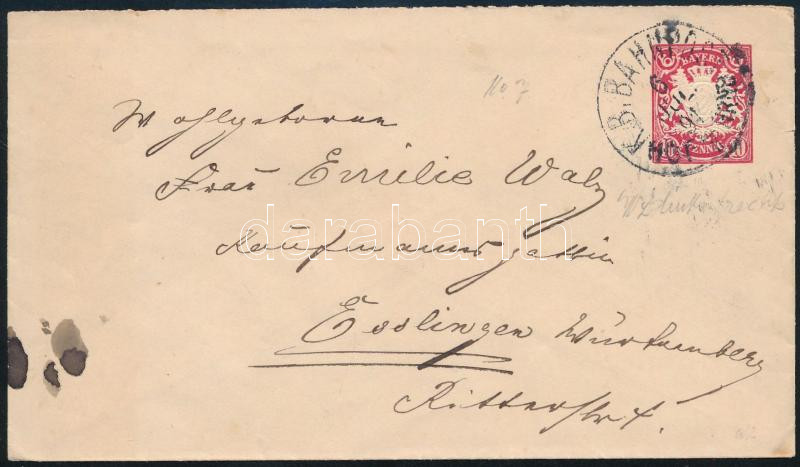 No 7
K.B. BAHNPOST
BAYERN
PFENNIG
Wohlgeboren
Frau Emilie Walz
Kaufmannsgattin
Esslingen Württemberg
Ritterstr 4.
darabanth